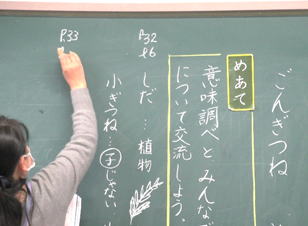 ごんぎつね
めあて
意味調べとみんなで
について交流しよう。
P32
l6
しだ…植物
小ぎつね…子じゃない
P.33